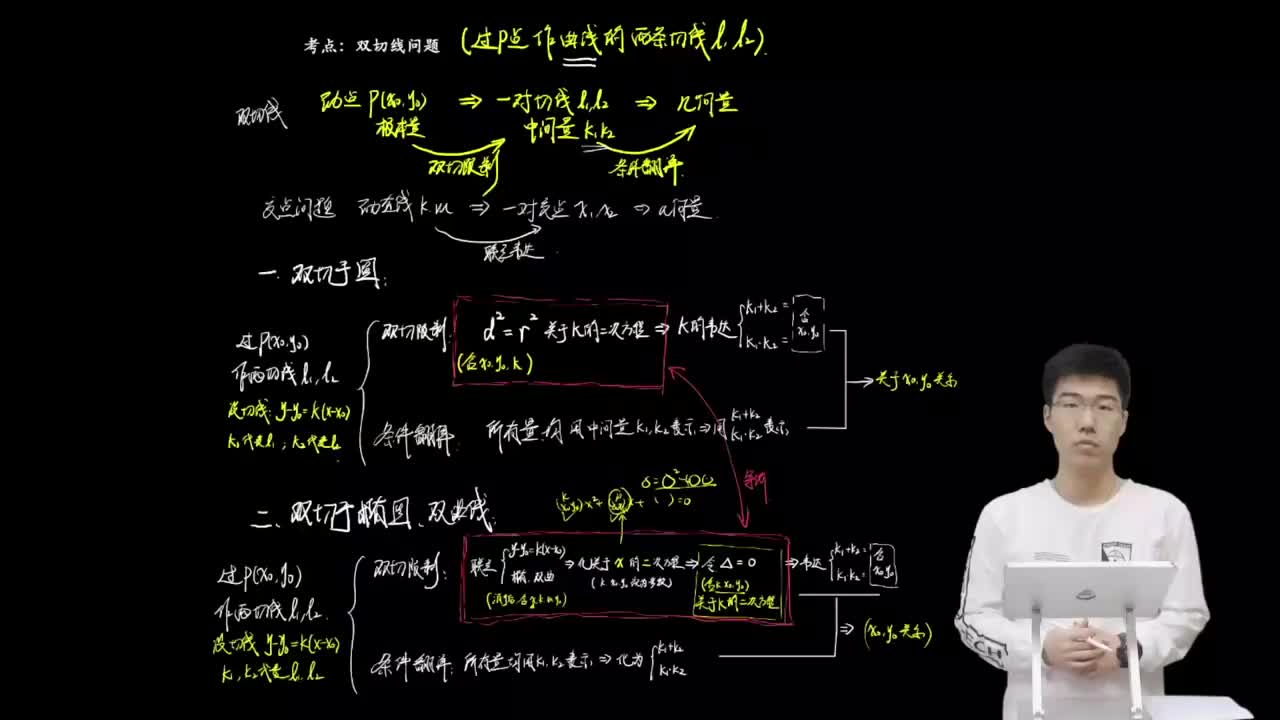 考点：双切线问题 (过P点作曲线的两条切线l₁l₂).
双切线 动点P(x₀,y₀) ⇒ 一对切线l₁,l₂ ⇒ 几何量
根本量 中间量k₁k₂
双切限制 条件翻译
交点问题 动直线k.m ⇒ 一对交点x₁,x₂ ⇒ 几何量
联立韦达
一.双切于圆:
过P(x₀,y₀)
作两切线l₁,l₂
设切线:y-y₀=k(x-x₀)
k₁代表l₁;k₂代表l₂
双切限制: d²=r² 关于k的二次方程 ⇒ k的韦达 { k₁+k₂= k₁·k₂= 含x₀,y₀
(含x₀,y₀,k)
→ 关于x₀,y₀关系
条件翻译: 所有量,均用中间量k₁,k₂表示 ⇒ 用 k₁+k₂ k₁·k₂ 表示
等价
二、双切于椭圆、双曲线
过P(x₀,y₀)
作两切线l₁,l₂
设切线 y-y₀=k(x-x₀)
k₁,k₂代表l₁,l₂
双切限制: 联立 { y-y₀=k(x-x₀) 椭圆,双曲 ⇒ 化关于x的二次方程 ⇒ 令△=0 ⇒ 韦达 { k₁+k₂= k₁·k₂= 含x₀y₀
(含k,x₀,y₀)
关于k的二次方程
⇒ (x₀,y₀关系)
条件翻译: 所有量均用k₁,k₂表示 ⇒ 化为 { k₁+k₂ k₁·k₂